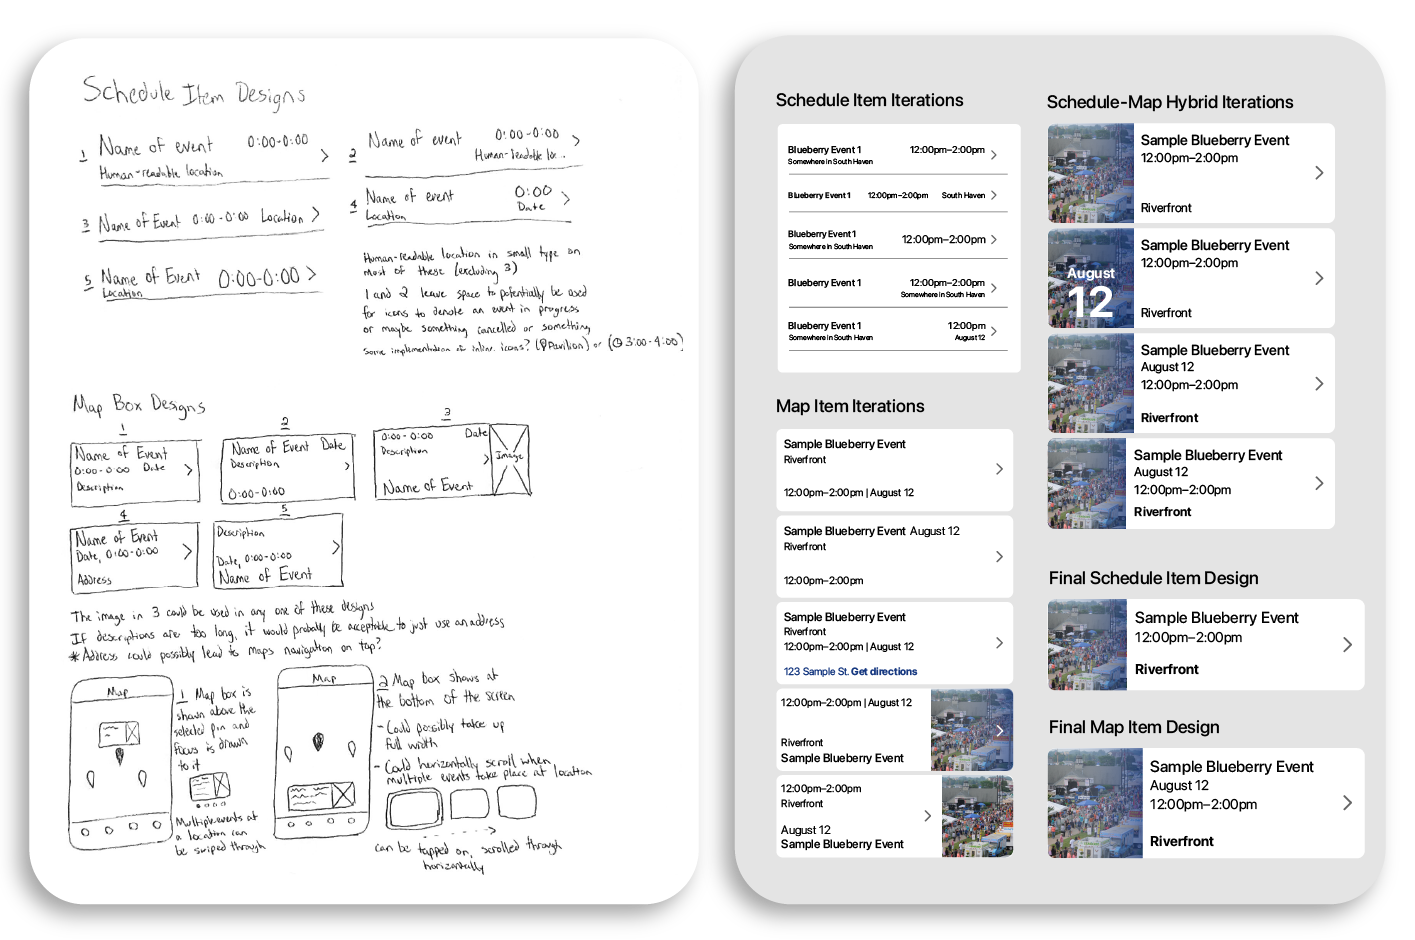 Schedule Item Designs
1 Name of event 0:00-0:00 >
Human-readable location
2 Name of event 0:00-0:00 >
Human-readable loc..
3 Name of Event 0:00-0:00 Location >
4 Name of event 0:00 >
Location Date
5 Name of Event 0:00-0:00 >
Location
Human-readable location in small type on
most of these (excluding 3)
1 and 2 leave space to potentially be used
for icons to denote an event in progress
or maybe something cancelled or something
some implementation of inline icons? (Pavilion) or (3:00-4:00)
Map Box Designs
1
Name of Event
0:00-0:00 Date >
Description
2
Name of Event Date
Description >
0:00-0:00
3
0:00-0:00 Date
Description
> Image
Name of Event
4
Name of Event
Date, 0:00-0:00 >
Address
5
Description
>
Date, 0:00-0:00
Name of Event
The image in 3 could be used in any one of these designs
If descriptions are too long, it would probably be acceptable to just use an address
*Address could possibly lead to maps navigation on tap?
Map
1 Map box is
shown above the
selected pin and
focus is drawn
to it
Multiple events at
a location can
be swiped through
Map
2 Map box shows at
the bottom of the screen
- Could possibly take up
full width
- Could horizontally scroll when
multiple events take place at location
can be tapped on, scrolled through
horizontally
Schedule Item Iterations
Blueberry Event 1 12:00pm–2:00pm
Somewhere in South Haven
Blueberry Event 1 12:00pm–2:00pm South Haven
Blueberry Event 1 12:00pm–2:00pm
Somewhere in South Haven
Blueberry Event 1 12:00pm–2:00pm
Somewhere in South Haven
Blueberry Event 1 12:00pm
Somewhere in South Haven August 12
Map Item Iterations
Sample Blueberry Event
Riverfront
12:00pm–2:00pm | August 12
Sample Blueberry Event August 12
Riverfront
12:00pm–2:00pm
Sample Blueberry Event
Riverfront
12:00pm–2:00pm | August 12
123 Sample St. Get directions
12:00pm–2:00pm | August 12
Riverfront
Sample Blueberry Event
12:00pm–2:00pm
Riverfront
August 12
Sample Blueberry Event
Schedule-Map Hybrid Iterations
Sample Blueberry Event
12:00pm–2:00pm
Riverfront
Sample Blueberry Event
12:00pm–2:00pm
August
12
Riverfront
Sample Blueberry Event
August 12
12:00pm–2:00pm
Riverfront
Sample Blueberry Event
August 12
12:00pm–2:00pm
Riverfront
Final Schedule Item Design
Sample Blueberry Event
12:00pm–2:00pm
Riverfront
Final Map Item Design
Sample Blueberry Event
August 12
12:00pm–2:00pm
Riverfront